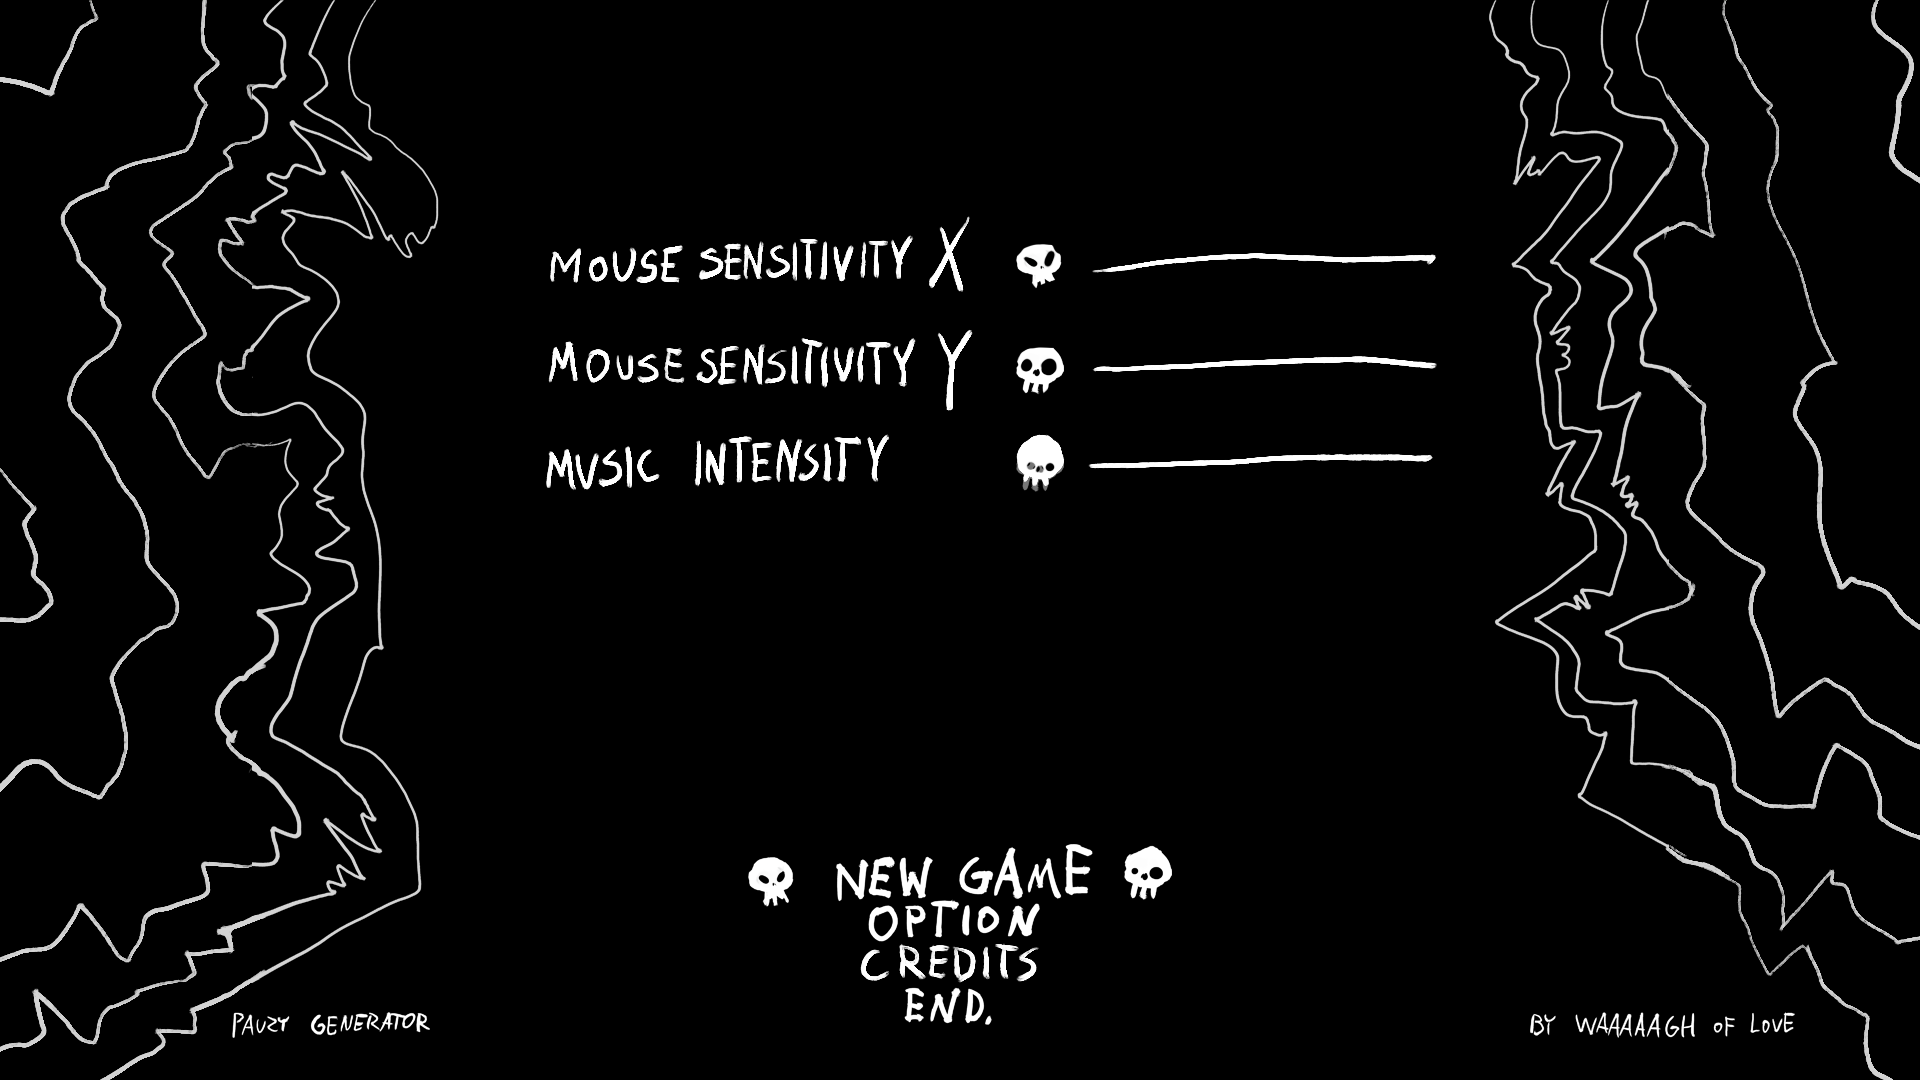 MOUSE SENSITIVITY X
MOUSE SENSITIVITY Y
MUSIC INTENSITY
NEW GAME
OPTION
CREDITS
END.
PAUZY GENERATOR
BY WAAAAAGH OF LOVE